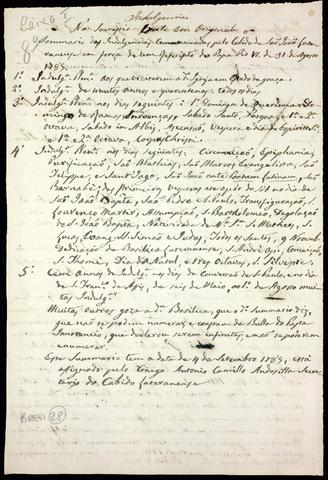 Indulgencias
Cérco 1
8º
Na Sacristia
Summario das Indulgencias communicadas pelo Cabido de São João Late
ranense em força de um Rescripto do Papa Pio VI. de 31 de Agosto
de 1785.
1º. Indulg. Plen. aos que visitarem a dª Igreja em
2º. Indulgª. de muitos annos e quarentenas todos os dias
3º. Indulgª. Plen. nos dias seguintes: 1ª Dominga de Quaresma Do-
mingo de Ramos, Sabado Santo, Pascoa, e
octava, Sabado in Albis, Ascensão, Vespera e dia do Espirito Stº
e octava, Corpus Christi.
4º. Indulgª. Plen. nos dias seguintes, Circumcisão, Epiphania,
Purificação, São Mathias, São Marcos Evangelista, São
Filippe, e Sant'Iago, São João ante Portam Latinam, São
Barnabé, das primeiras vesperas ao do dia de
São João Bapta, São Pedro e S. Paulo, Transfiguração, S.
Lourenço Martir, Assumpção, S. Bartholomeo, Degolação
de S. João Bapta, Natividade de N. Srª. S. Matheos, S.
Lucas, Evang. S. Simão e Judas, Todos os Santos, 9 Novembro
Dedicação da Basilica Lateranense, S. André Ap., Conceição,
S. Thomé, Dia do Natal, e tres Octavas, S. Silvestre.
5º. Cem annos de Indulgª. no dia da Conversão de S. Paulo, e no dia
de S. Franco. de Assis, de seis de Maio, 1º de Agosto muitas
Indulgªs.
Muitas outras goza a dª. Basilica, que o dº. Summario diz,
que não se podem numerar, e constam da Bulla do Papa
Innocencio, que declarou serem infinitas, e não se poderem
enumerar.
Este Summario tem a data de 4 de Setembro 1785, está
assignado pelo Conego Antonio Camillo Secre-
tario do Cabido Lateranense.
28